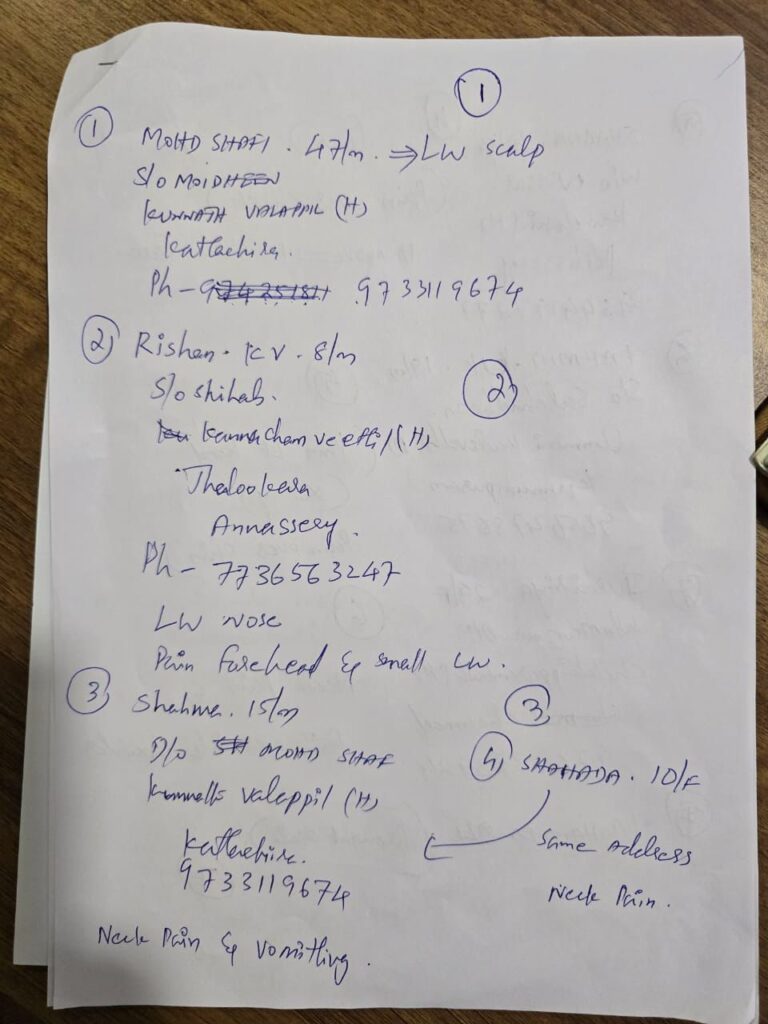 1
1 MOHD SHAFI . 47/m. ⇒ LW scalp
S/o MOIDHEEN
KUNNATH VALAPPIL (H)
Kattachira.
Ph - 9733119674
2 Rishan . K V . 8/m
2
S/o Shihab.
Kannacham veettil (H)
Thalookara
Annassery.
Ph - 7736563247
LW nose
Pain forehead & small LW .
3 Shahma . 15/m
3
D/o MOHD SHAF
Kunnath valappil (H)
Kattachira.
9733119674
Neck Pain & vomitting .
4 SHAHADA . 10/F
Same Address
Neck Pain .